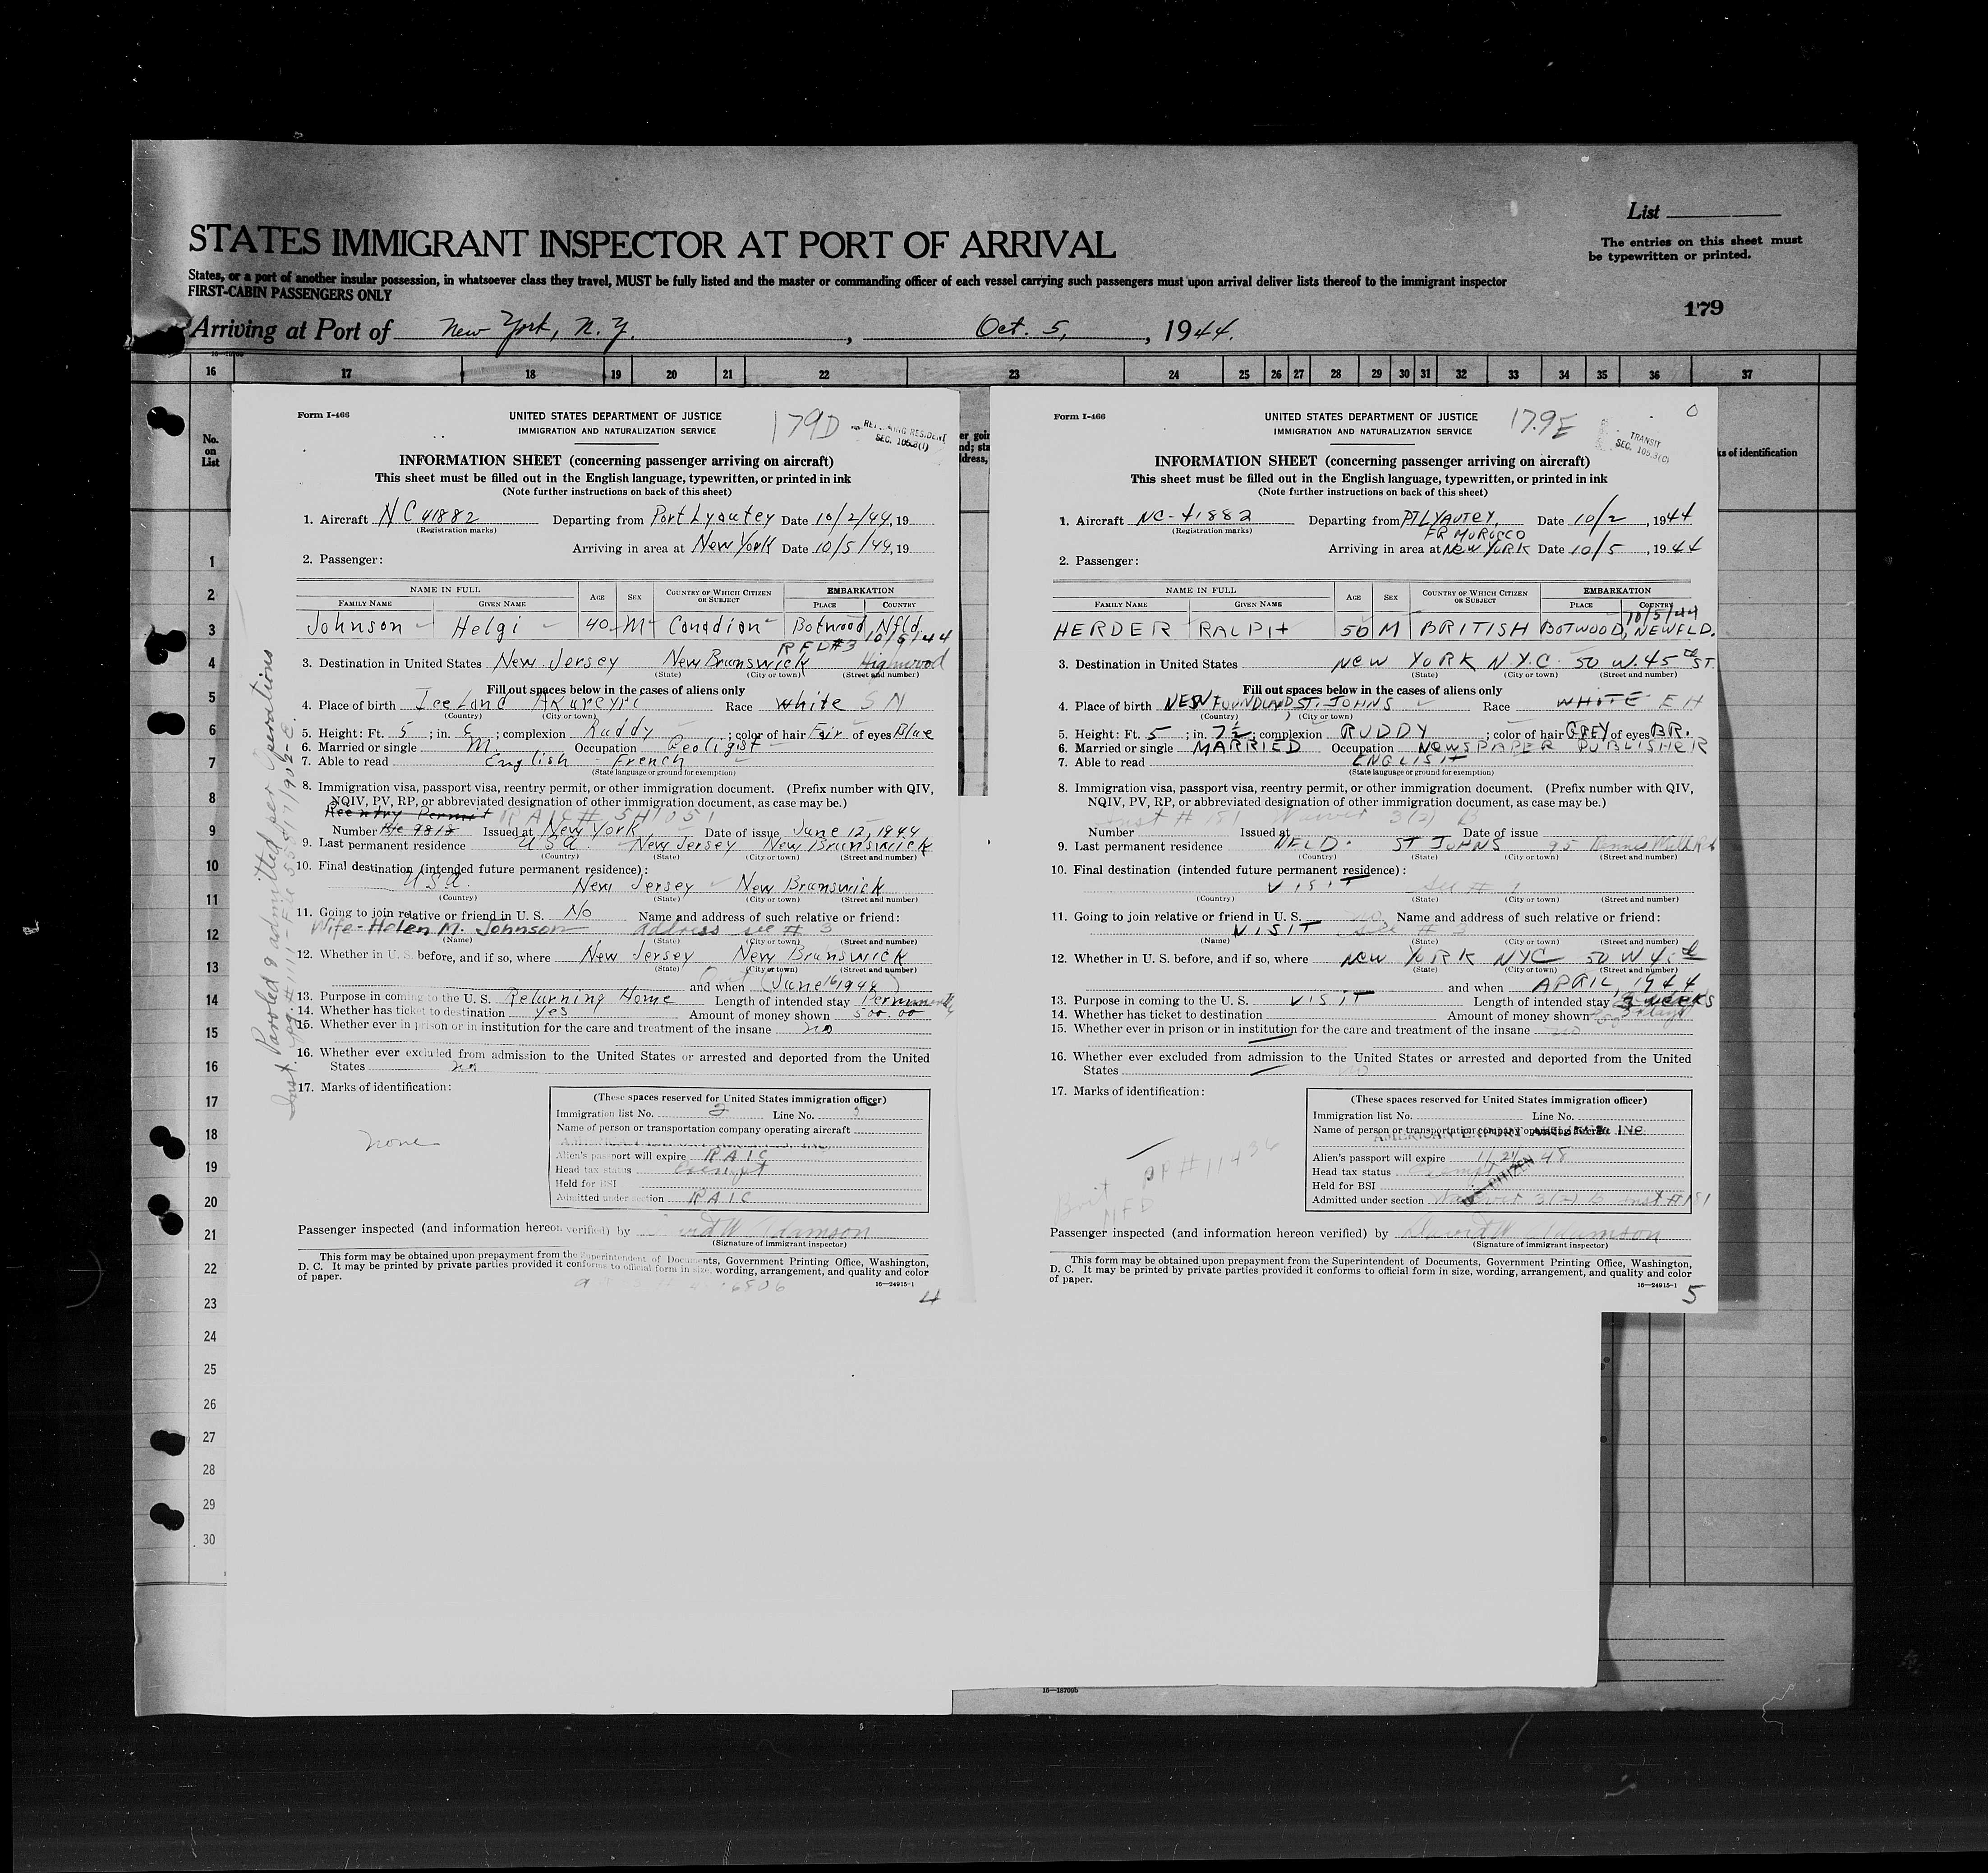 List
STATES IMMIGRANT INSPECTOR AT PORT OF ARRIVAL
The entries on this sheet must
be typewritten or printed.
States, or a port of another insular possession, in whatsoever class they travel, MUST be fully listed and the master or commanding officer of each vessel carrying such passengers must upon arrival deliver lists thereof to the immigrant inspector
FIRST-CABIN PASSENGERS ONLY
179
Arriving at Port of New York, N. Y. , Oct. 5, , 1944.
16 17 18 19 20 21 22 23 24 25 26 27 28 29 30 31 32 33 34 35 36 37
No.
on
List
1
2
3
4
5
6
7
8
9
10
11
12
13
14
15
16
17
18
19
20
21
22
23
24
25
26
27
28
29
30
Form I-466
UNITED STATES DEPARTMENT OF JUSTICE
179D
IMMIGRATION AND NATURALIZATION SERVICE
SEC. 105.3(1)
INFORMATION SHEET (concerning passenger arriving on aircraft)
This sheet must be filled out in the English language, typewritten, or printed in ink
(Note further instructions on back of this sheet)
1. Aircraft NC 41882 Departing from Port Lyautey Date 10/2/44, 19
(Registration marks)
Arriving in area at New York Date 10/5/44, 19
2. Passenger:
NAME IN FULL AGE SEX COUNTRY OF WHICH CITIZEN OR SUBJECT EMBARKATION
FAMILY NAME GIVEN NAME PLACE COUNTRY
Johnson Helgi 40 M Canadian Botwood Nfld
RFD#3 10/5/44
3. Destination in United States New Jersey New Brunswick Highwood
(State) (City or town) (Street and number)
Fill out spaces below in the cases of aliens only
4. Place of birth Iceland Akureyri Race white S N
(Country) (City or town)
5. Height: Ft. 5 ; in. ; complexion Ruddy ; color of hair Fair of eyes Blue
6. Married or single M. Occupation Geologist
7. Able to read English French
(State language or ground for exemption)
8. Immigration visa, passport visa, reentry permit, or other immigration document. (Prefix number with QIV,
NQIV, PV, RP, or abbreviated designation of other immigration document, as case may be.)
Reentry Permit RAIC #
Number 9818 Issued at New York Date of issue June 12, 1944
9. Last permanent residence USA New Jersey New Brunswick
(Country) (State) (City or town) (Street and number)
10. Final destination (intended future permanent residence):
USA. New Jersey New Brunswick
(Country) (State) (City or town) (Street and number)
11. Going to join relative or friend in U. S. No Name and address of such relative or friend:
Wife - Helen M. Johnson address see # 3
(Name) (State) (City or town) (Street and number)
12. Whether in U. S. before, and if so, where New Jersey New Brunswick
(State) (City or town) (Street and number)
and when (June 16 1944)
13. Purpose in coming to the U. S. Returning Home Length of intended stay Permanently
14. Whether has ticket to destination yes Amount of money shown 500.00
15. Whether ever in prison or in institution for the care and treatment of the insane no
16. Whether ever excluded from admission to the United States or arrested and deported from the United
States no
17. Marks of identification:
none
(These spaces reserved for United States immigration officer)
Immigration list No. 2 Line No.
Name of person or transportation company operating aircraft
Alien's passport will expire RAIC
Head tax status Exempt
Held for BSI
Admitted under section RAIC
Passenger inspected (and information hereon verified) by David W Adamson
(Signature of immigrant inspector)
This form may be obtained upon prepayment from the Superintendent of Documents, Government Printing Office, Washington,
D. C. It may be printed by private parties provided it conforms to official form in size, wording, arrangement, and quality and color
of paper.
16—24915-1
4
Paroled & admitted per Operations
Form I-466
UNITED STATES DEPARTMENT OF JUSTICE
179E
IMMIGRATION AND NATURALIZATION SERVICE
TRANSIT
SEC. 105.3(C)
INFORMATION SHEET (concerning passenger arriving on aircraft)
This sheet must be filled out in the English language, typewritten, or printed in ink
(Note further instructions on back of this sheet)
1. Aircraft NC-41882 Departing from PT LYAUTEY, Date 10/2 , 1944
(Registration marks) FR MOROCCO
Arriving in area at NEW YORK Date 10/5 , 1944
2. Passenger:
NAME IN FULL AGE SEX COUNTRY OF WHICH CITIZEN OR SUBJECT EMBARKATION
FAMILY NAME GIVEN NAME PLACE COUNTRY
10/5/44
HERDER RALPH 50 M BRITISH BOTWOOD, NEWFLD.
3. Destination in United States NEW YORK N.Y.C. 50 W. 45th ST.
(State) (City or town) (Street and number)
Fill out spaces below in the cases of aliens only
4. Place of birth NEWFOUNDLAND ST. JOHNS Race WHITE E H
(Country) (City or town)
5. Height: Ft. 5 ; in. 7½ ; complexion RUDDY ; color of hair GREY of eyes BR.
6. Married or single MARRIED Occupation NEWSPAPER PUBLISHER
7. Able to read ENGLISH
(State language or ground for exemption)
8. Immigration visa, passport visa, reentry permit, or other immigration document. (Prefix number with QIV,
NQIV, PV, RP, or abbreviated designation of other immigration document, as case may be.)
Inst # 181 Waiver 3(2) B
Number Issued at Date of issue
9. Last permanent residence NFLD. ST JOHNS 95
(Country) (State) (City or town) (Street and number)
10. Final destination (intended future permanent residence):
VISIT See #
(Country) (State) (City or town) (Street and number)
11. Going to join relative or friend in U. S. no Name and address of such relative or friend:
VISIT See # 3
(Name) (State) (City or town) (Street and number)
12. Whether in U. S. before, and if so, where NEW YORK NYC 50 W 45th
(State) (City or town) (Street and number)
and when APRIL, 1944
13. Purpose in coming to the U. S. VISIT Length of intended stay WEEKS
14. Whether has ticket to destination Amount of money shown
15. Whether ever in prison or in institution for the care and treatment of the insane no
16. Whether ever excluded from admission to the United States or arrested and deported from the United
States no
17. Marks of identification:
PP # 11436
Brit
NFD
(These spaces reserved for United States immigration officer)
Immigration list No. Line No.
Name of person or transportation company operating aircraft
AMERICAN EXPORT INC.
Alien's passport will expire 11/21/48
Head tax status Exempt
Held for BSI
Admitted under section Waiver 3(2) B inst # 181
Passenger inspected (and information hereon verified) by David W Adamson
(Signature of immigrant inspector)
This form may be obtained upon prepayment from the Superintendent of Documents, Government Printing Office, Washington,
D. C. It may be printed by private parties provided it conforms to official form in size, wording, arrangement, and quality and color
of paper.
16—24915-1
5
ks of identification
16—18709b